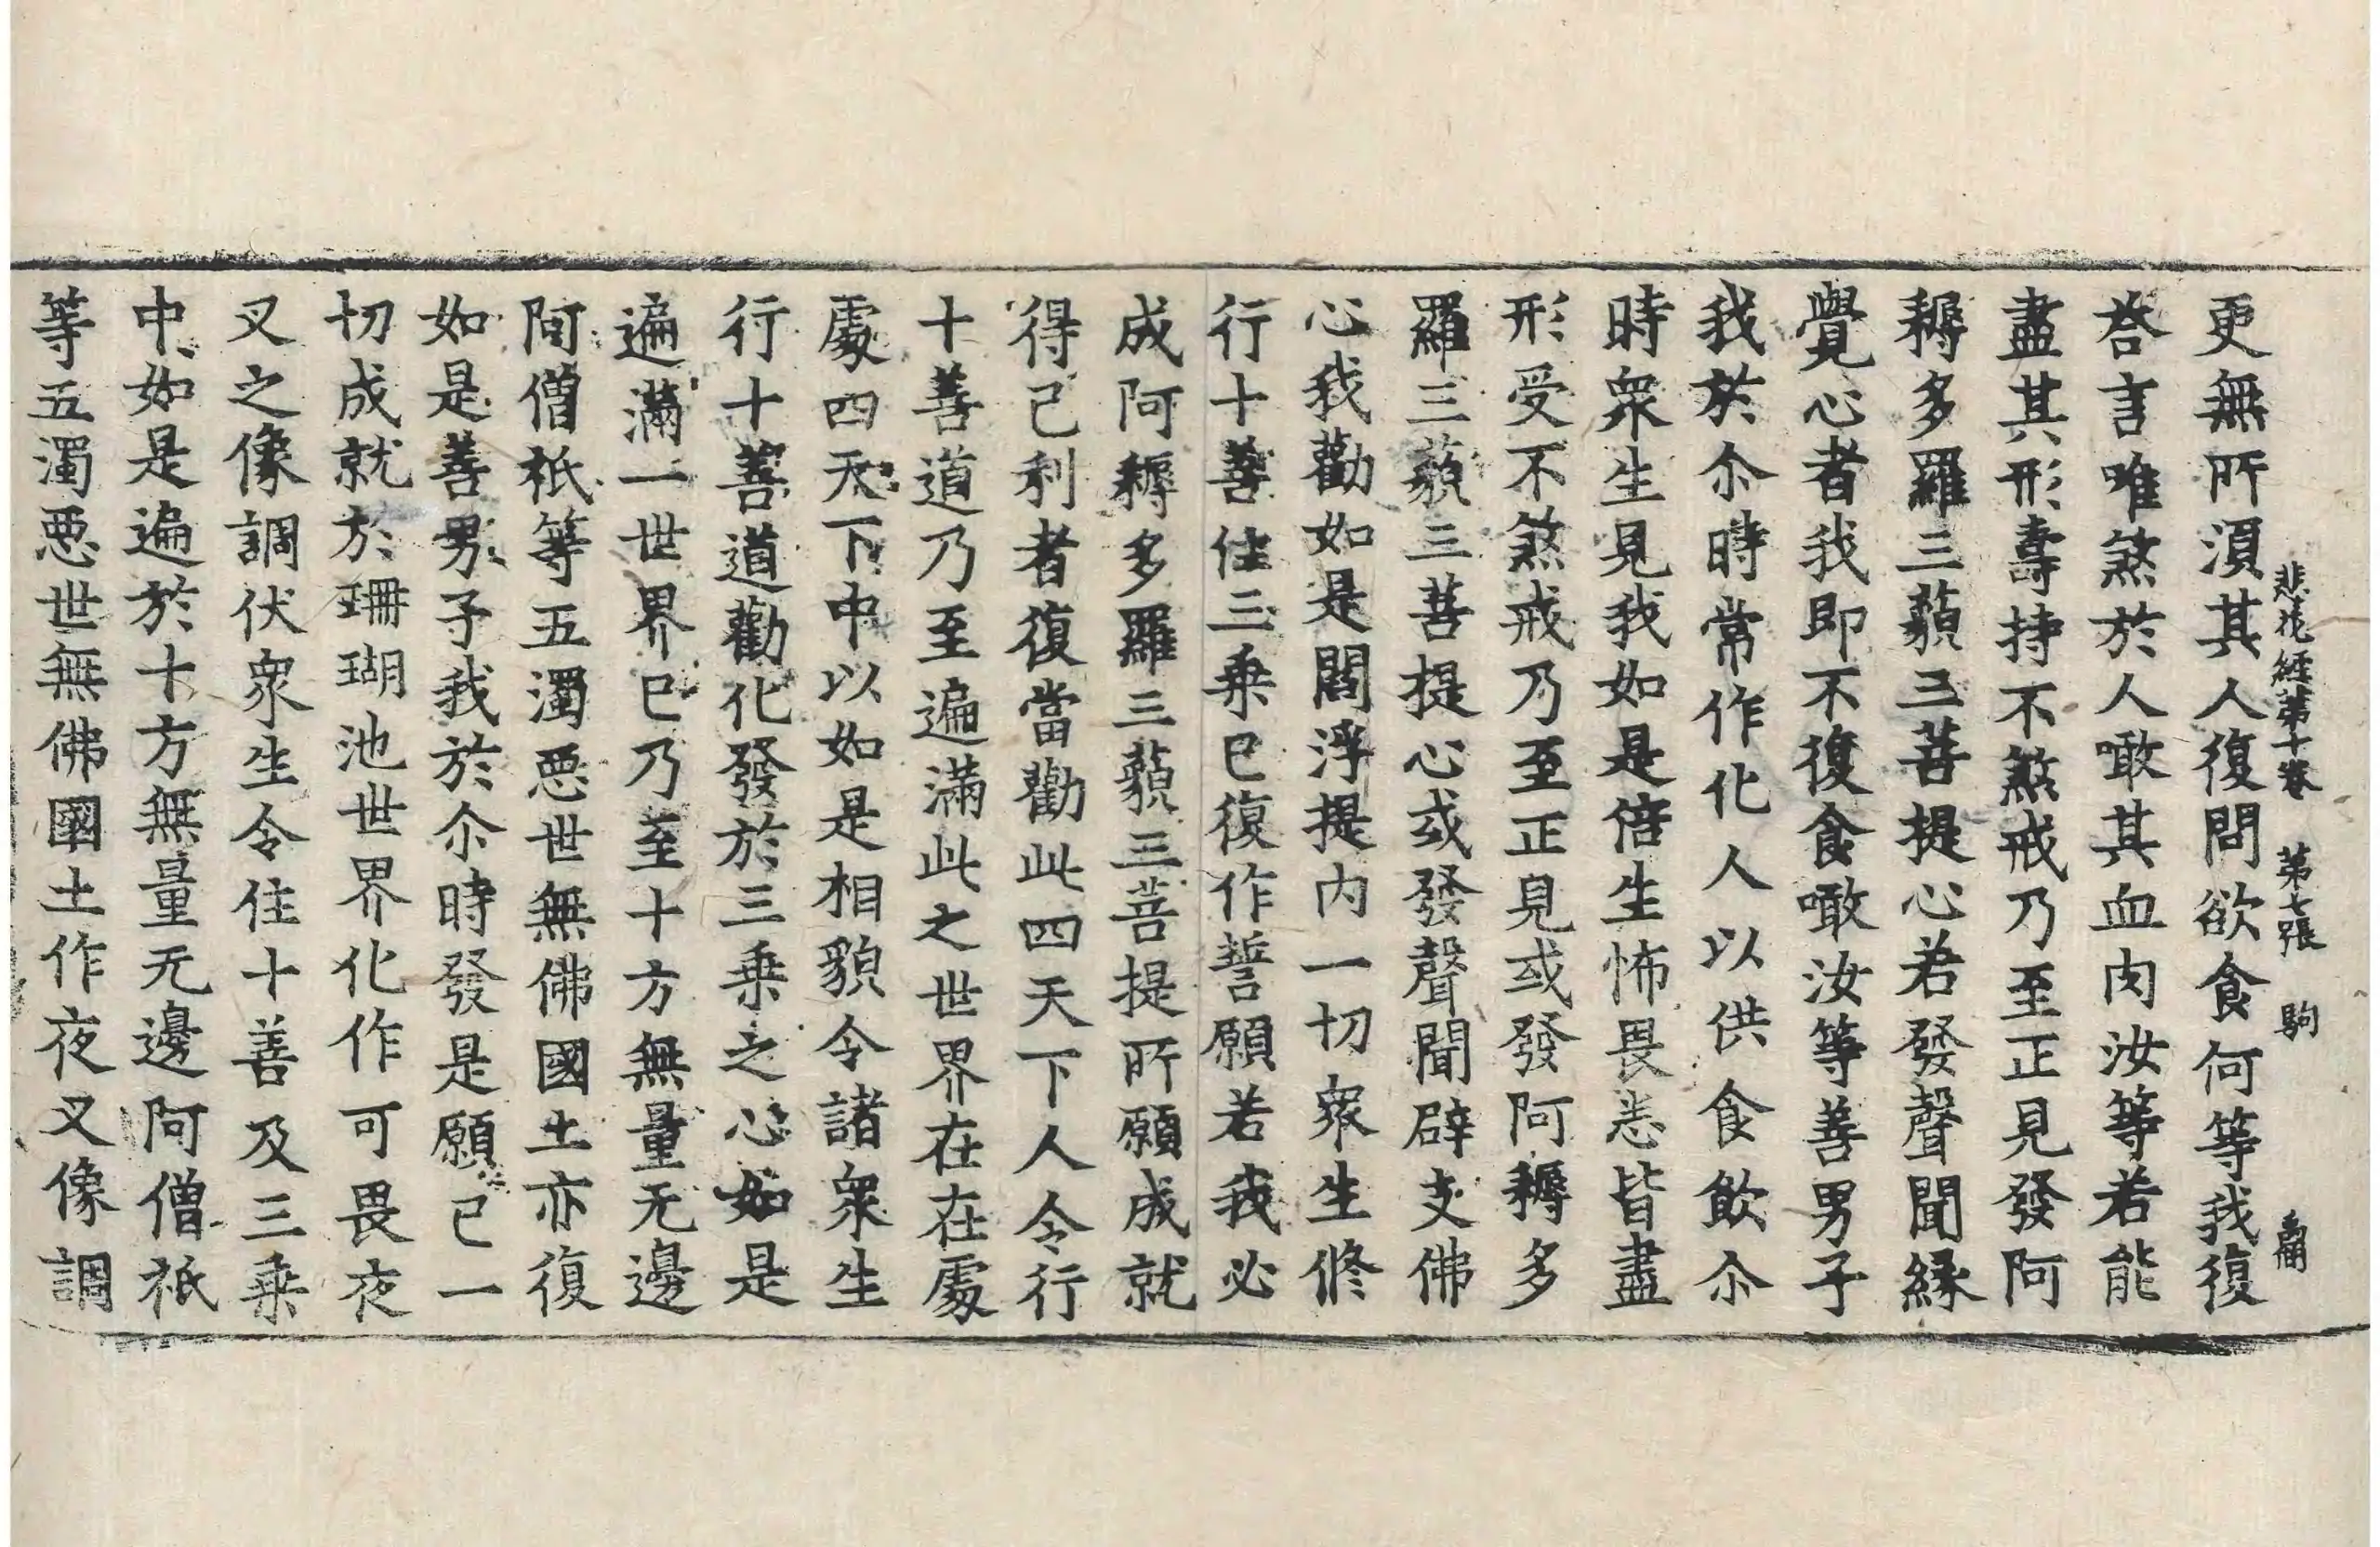 悲花經苐十卷 苐七張 駒
更無所湏其人復問欲食何等我復
荅言唯煞於人噉其血肉汝等若能
盡其形壽持不煞戒乃至正見發阿
耨多羅三藐三菩提心若發聲聞緣
覺心者我即不復食噉汝等善男子
我於尒時常作化人以供食飲尒
時衆生見我如是倍生怖畏悉皆盡
形受不煞戒乃至正見或發阿耨多
羅三藐三菩提心或發聲聞辟支佛
心我勸如是閻浮提内一切衆生修
行十善住三乗已復作誓願若我必
成阿耨多羅三藐三菩提所願成就
得己利者復當勸此四天下人令行
十善道乃至遍滿此之世界在在處
處四天下中以如是相貌令諸衆生
行十善道勸化發於三乗之心如是
遍滿一世界已乃至十方無量无邊
阿僧祇等五濁惡世無佛國土亦復
如是善男子我於尒時發是願已一
切成就於珊瑚池世界化作可畏夜
叉之像調伏衆生令住十善及三乗
中如是遍於十方無量无邊阿僧祇
等五濁惡世無佛國土作夜叉像調